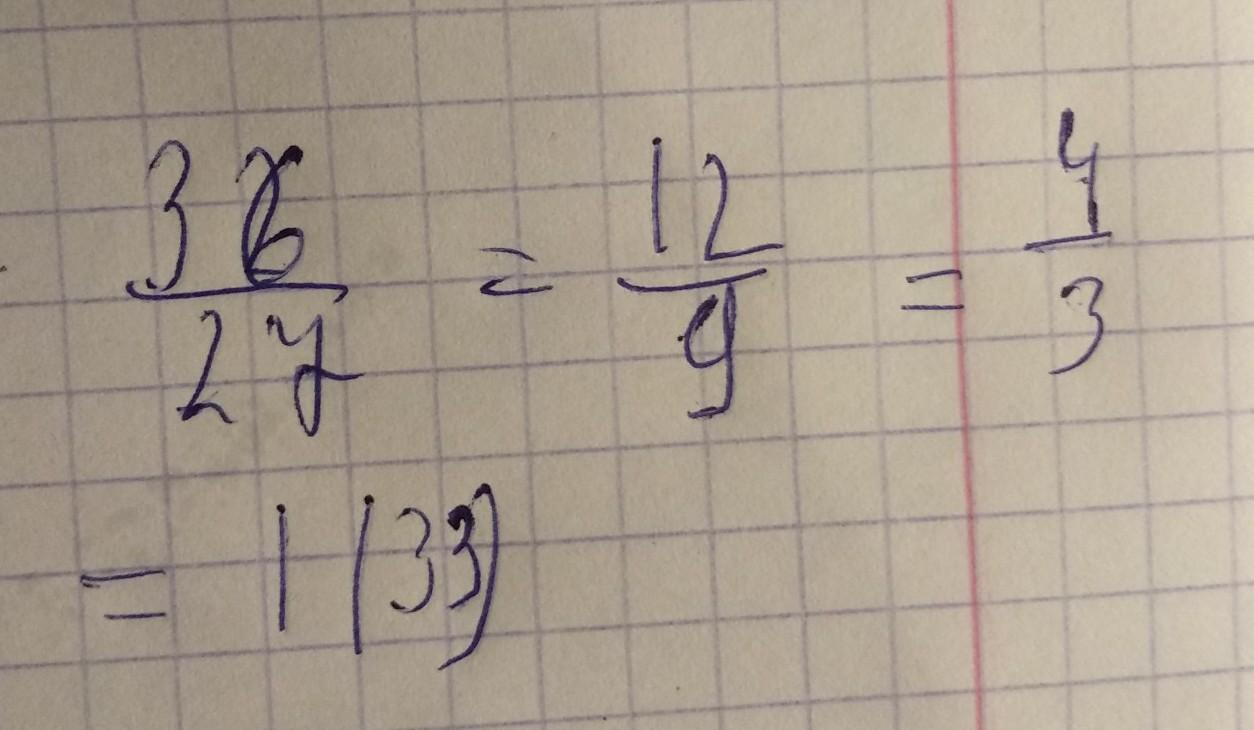 36/27 = 12/9 = 4/3
= 1(33)